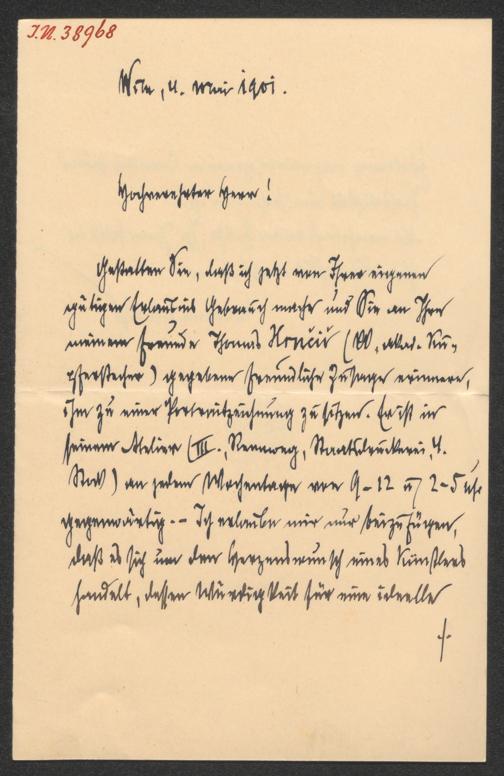 I.N. 38968
Wien, 4. Mai 1901.
Hochverehrter Herr!
Gestatten Sie, daß ich jetzt von Ihrer eigenen
gütigen Erlaubnis Gebrauch mache und Sie an Ihre
meinem Freunde Thomas Hrnčiř (akad. Ku-
pferstecher) gegebene freundliche Zusage erinnere,
ihm zu einer Portraitzeichnung zu sitzen. Er ist in
seinem Atelier (III., Rennweg, Staatsdruckerei, 4.
Stock) an jedem Wochentage von 9-12 u 2-5 Uhr
gegenwärtig. – Ich erlaube mir nur beizufügen,
daß es sich um den Herzenswunsch eines Künstlers
handelt, dessen Würdigkeit für eine ideelle
./.